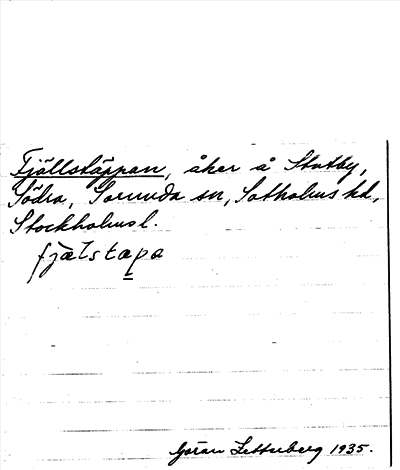 Fjällstäppan, åker å Stutby,
Södra, Sorunda sn, Sotholms hd,
Stockholmsl.
fjälstapa
Göran Zetterberg 1935.